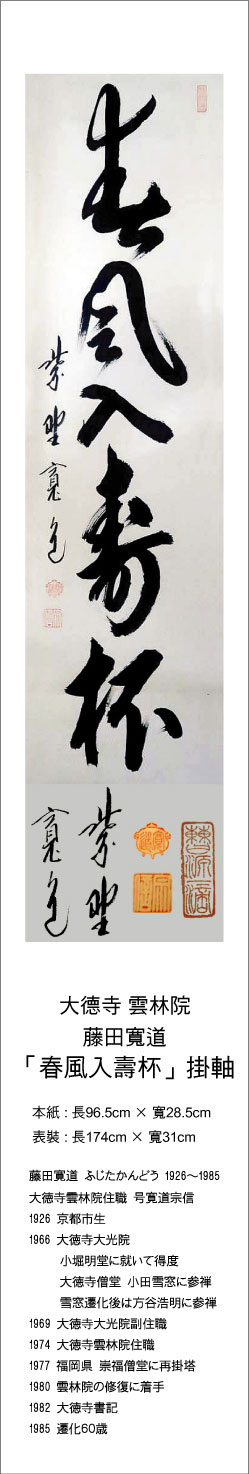 春風入壽杯
紫野寛道
紫野
寛道
大德寺 雲林院
藤田寛道
「春風入壽杯」掛軸
本紙 : 長96.5cm × 寬28.5cm
表裝 : 長174cm × 寬31cm
藤田寛道 ふじたかんどう 1926～1985
大徳寺雲林院住職 号寛道宗信
1926 京都市生
1966 大徳寺大光院
小堀明堂に就いて得度
大徳寺僧堂 小田雪窓に参禅
雪窓遷化後は方谷浩明に参禅
1969 大徳寺大光院副住職
1974 大徳寺雲林院住職
1977 福岡県 崇福僧堂に再掛塔
1980 雲林院の修復に着手
1982 大徳寺書記
1985 遷化60歳